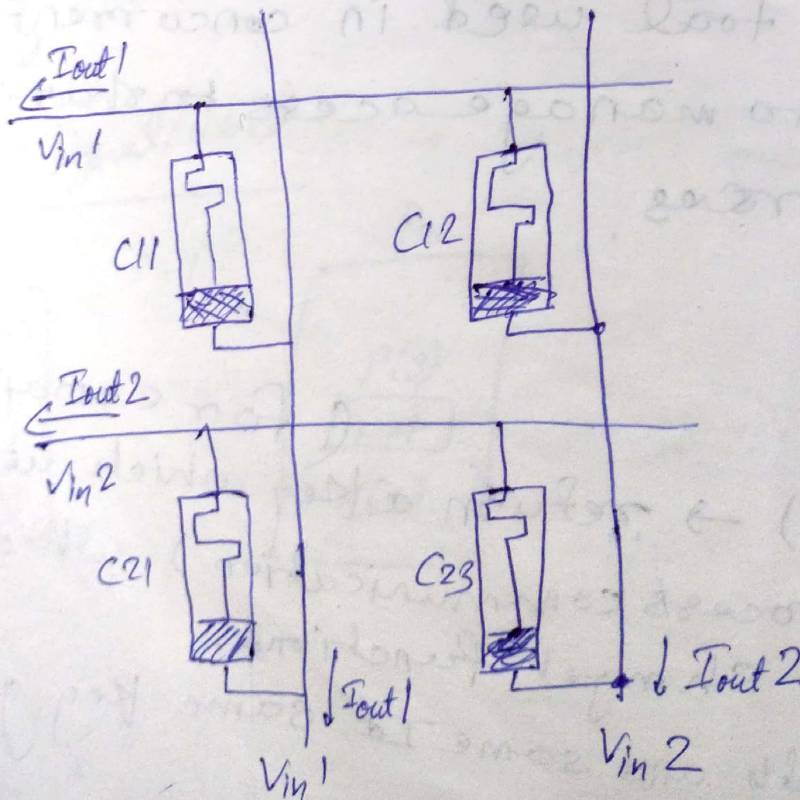 Iout1
Vin1
C11
C12
Iout2
Vin2
C21
C23
Iout1
Iout2
Vin1
Vin2